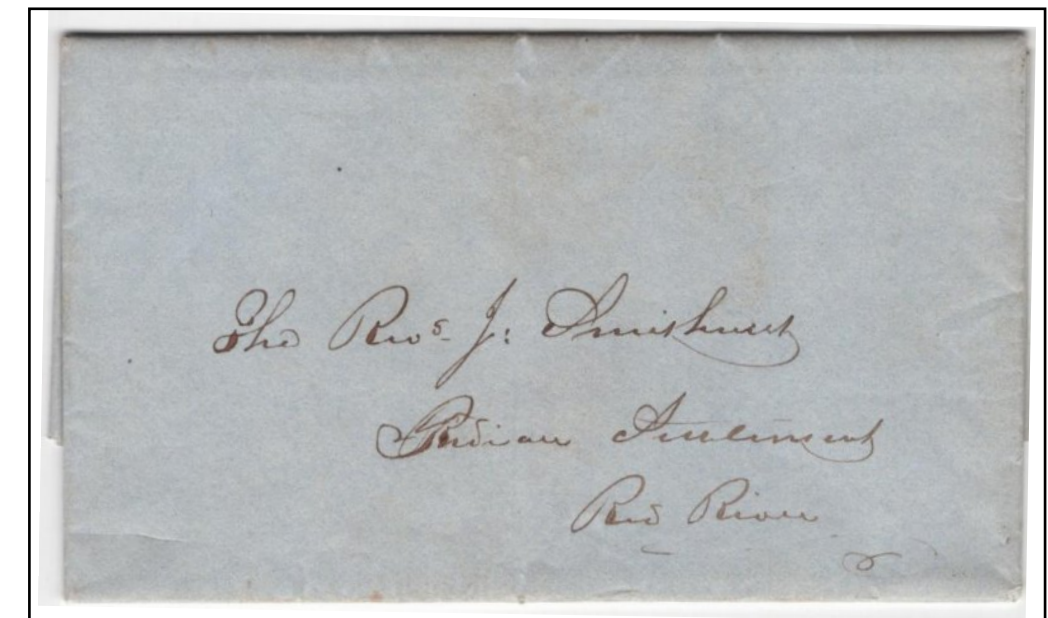 The Revd. J: Smithurst
Indian Settlement
Red River